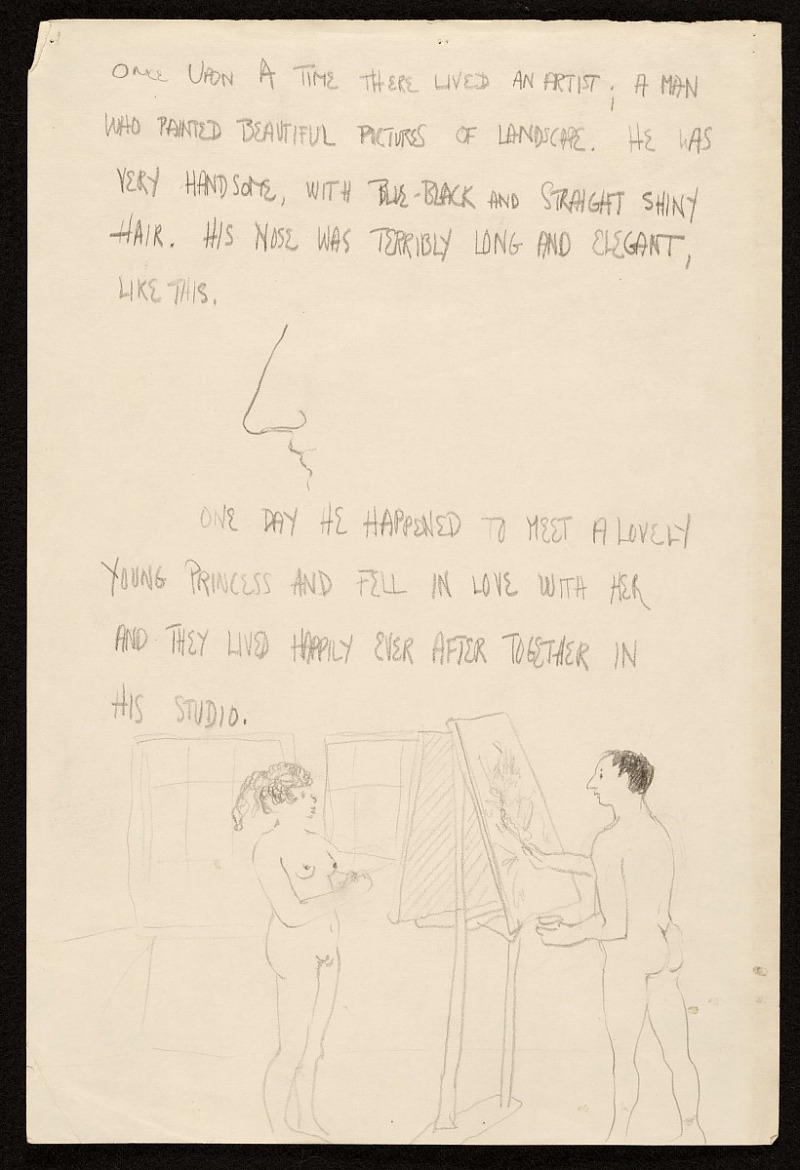 ONCE UPON A TIME THERE LIVED AN ARTIST; A MAN
WHO PAINTED BEAUTIFUL PICTURES OF LANDSCAPE. HE WAS
VERY HANDSOME, WITH BLUE-BLACK AND STRAIGHT SHINY
HAIR. HIS NOSE WAS TERRIBLY LONG AND ELEGANT,
LIKE THIS.
ONE DAY HE HAPPENED TO MEET A LOVELY
YOUNG PRINCESS AND FELL IN LOVE WITH HER
AND THEY LIVED HAPPILY EVER AFTER TOGETHER IN
HIS STUDIO.